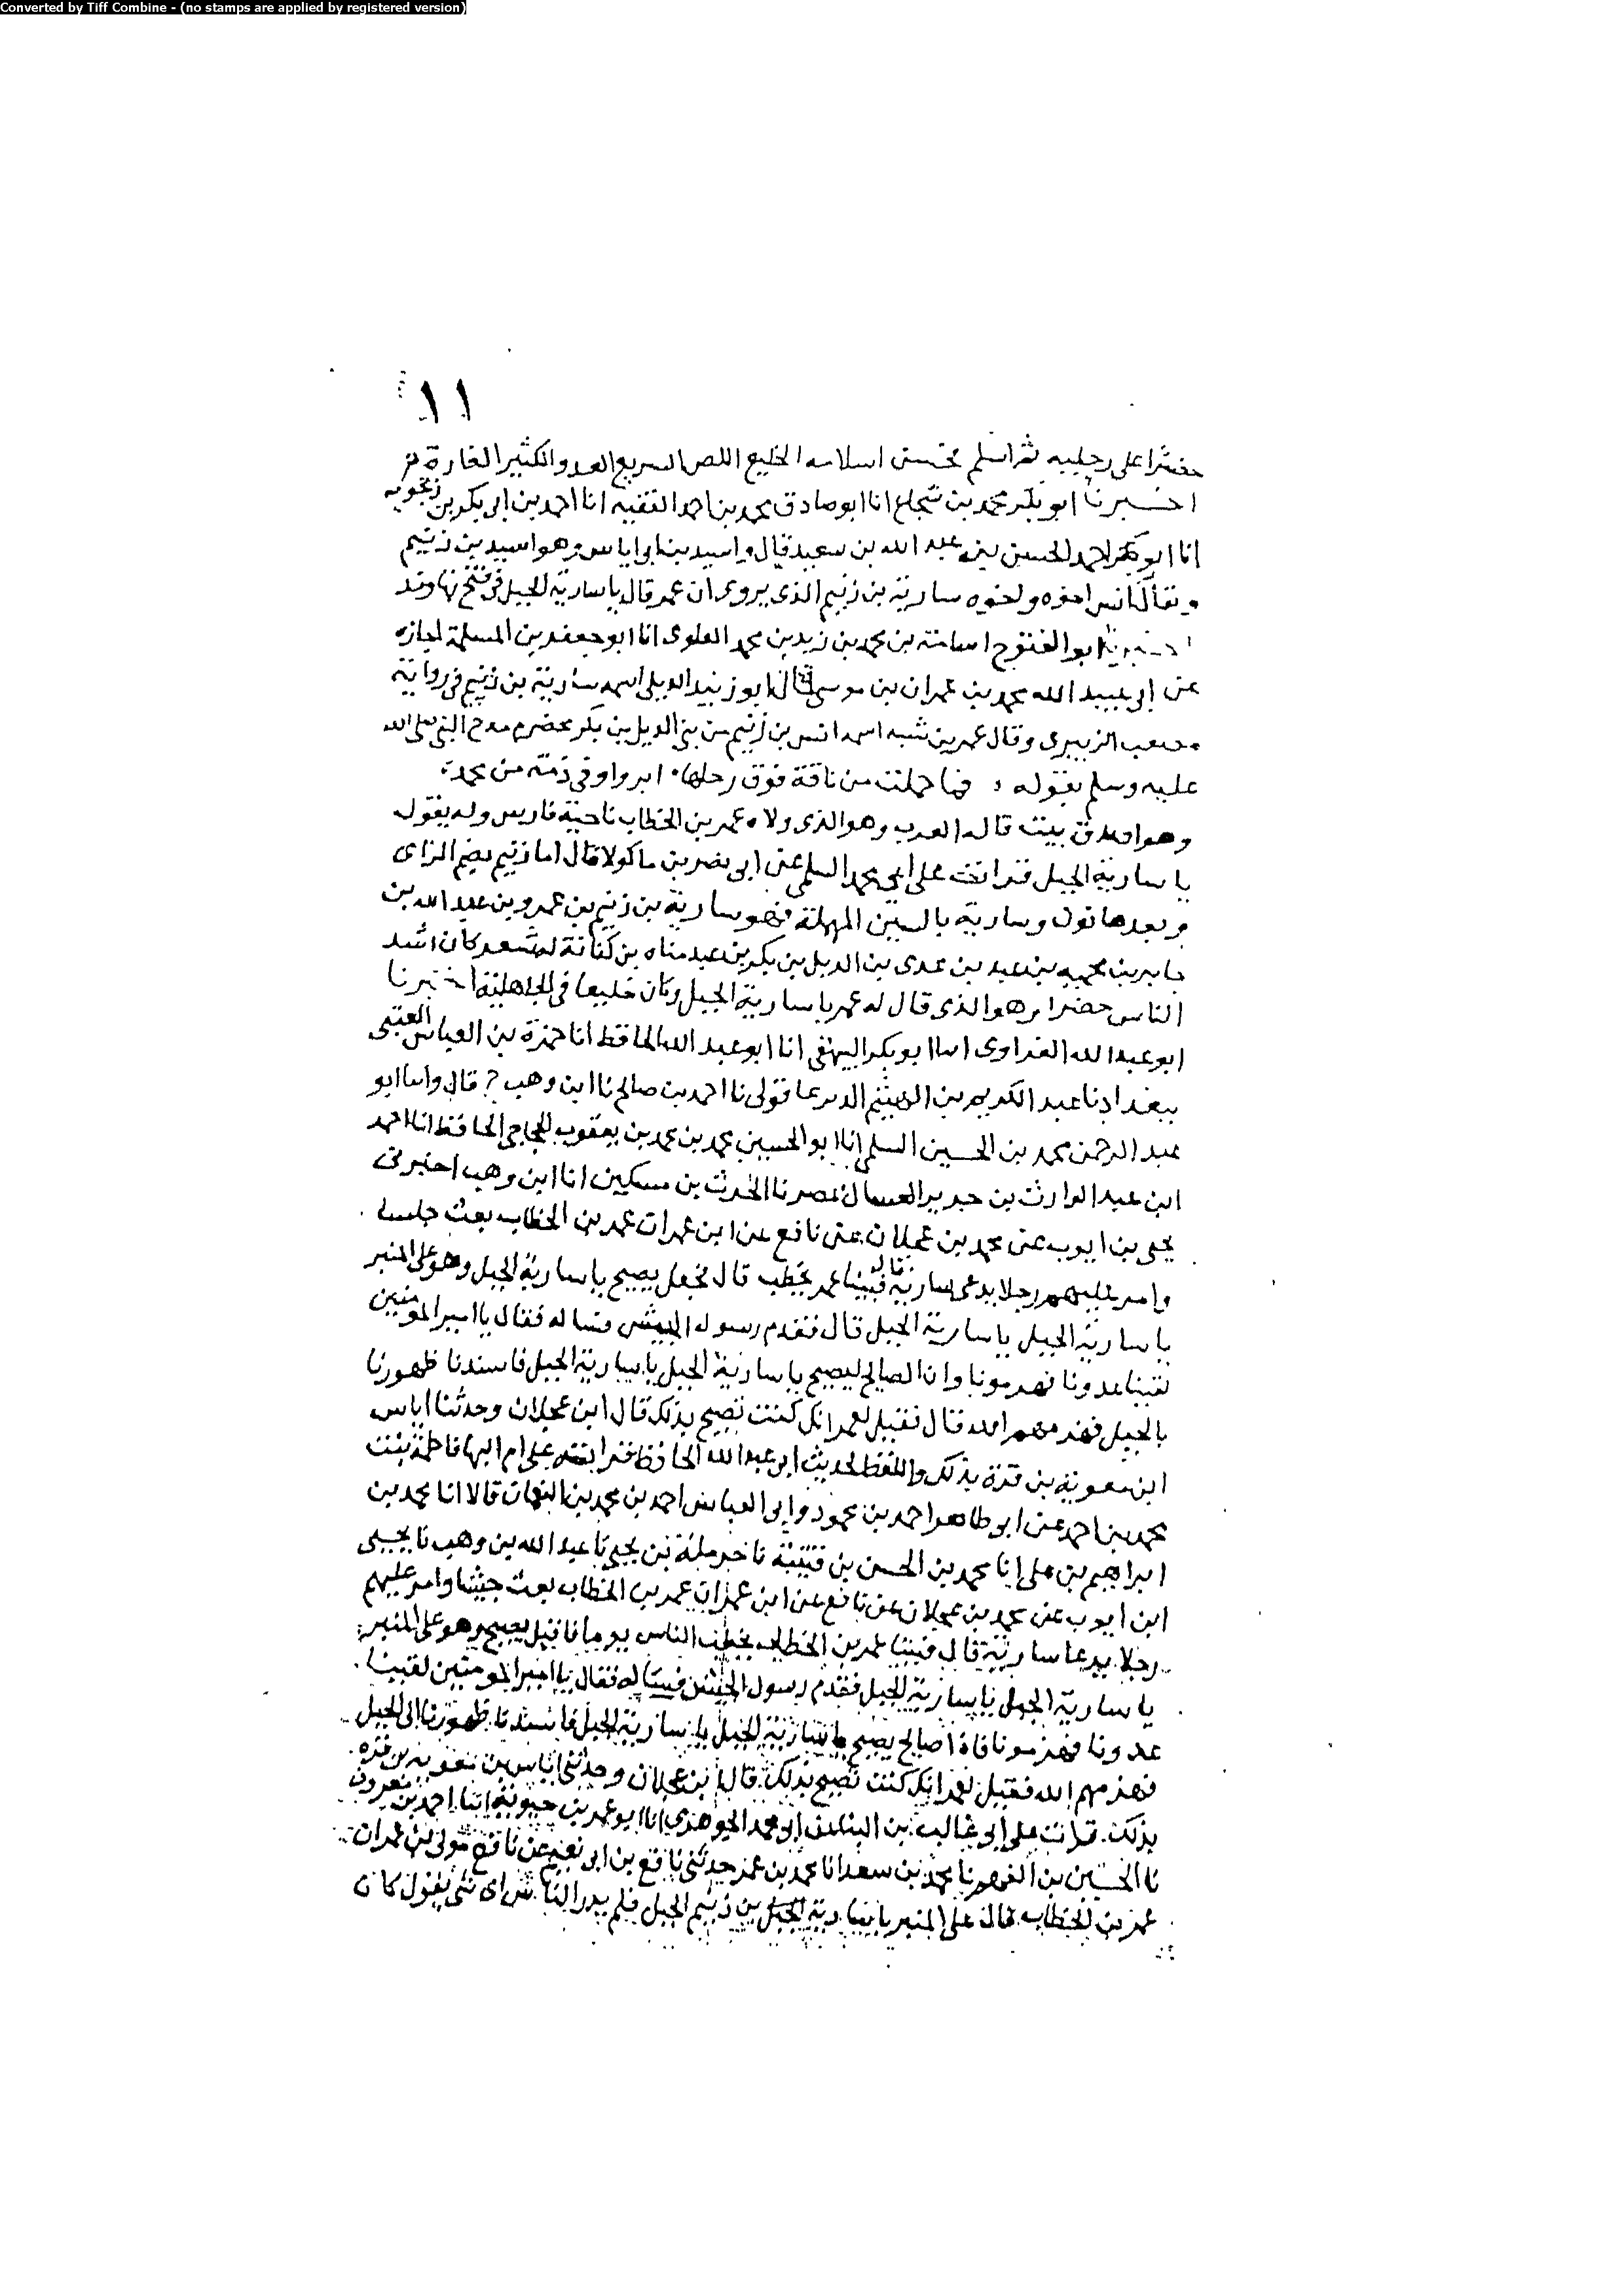 Converted by Tiff Combine - (no stamps are applied by registered version)
١١
حضرا على رجليه ثم اسلم فحسن اسلامه الخليع اللص السريع العدو الكثير الغارة
اخبرنا ابو بكر محمد بن شجاع انا ابو صادق محمد بن احمد الفقيه انا احمد بن ابى بكر بن زنجويه
انا ابو احمد الحسن بن عبد الله بن سعيد قال واسيد بن ابى اياس وهو اسيد بن زنيم
ويقال انس اخوه واخوه سارية بن زنيم الذى يروى ان عمر قال يا سارية الجبل فى فتح نهاوند
اخبرنا ابو الفتوح اسامة بن محمد بن زيد بن محمد العلوى انا ابو جعفر بن المسلمة اجازة
عن ابى عبيد الله محمد بن عمران بن موسى قال ابو زنيد الديلى اسمه سارية بن زنيم فى رواية
مصعب الزبيرى وقال عمر بن شبه اسمه انس بن زنيم من بنى الديل بن بكر مخضرم مدح النبى صلى الله
عليه وسلم بقوله فما حملت من ناقة فوق رحلها ابر واوفى ذمة من محمد
وهو اصدق بيت قاله العرب وهو الذى ولاه عمر بن الخطاب ناحية فارس وله يقول
يا سارية الجبل قرات على ابى محمد السلمى عن ابى نصر بن ماكولا قال اما زنيم بضم الزاى
وبعدها نون وسارية بالسين المهملة فهو سارية بن زنيم بن عمرو بن عبد الله بن
جابر بن محميه بن عبد بن عدى بن الديل بن بكر بن عبد مناه بن كنانة له شعر كان اشد
الناس حضرا وهو الذى قال له عمر يا سارية الجبل وكان خليعا فى الجاهلية اخبرنا
ابو عبد الله الفراوى انا ابو بكر البيهقى انا ابو عبد الله الحافظ انا حمزة بن العباس العقبى
ببغداد نا عبد الكريم بن الهيثم الديرعاقولى نا احمد بن صالح نا ابن وهب ح قال وانا ابو
عبد الرحمن محمد بن الحسين السلمى انا ابو الحسين محمد بن محمد بن يعقوب الحجاجى الحافظ انا احمد
ابن عبد الوارث بن جرير العسال بمصر نا الحرث بن مسكين انا ابن وهب اخبرنى
يحيى بن ايوب عن محمد بن عجلان عن نافع عن ابن عمر ان عمر بن الخطاب بعث جيشا
وامر عليهم رجلا يدعى سارية قال فبينا عمر يخطب قال فجعل يصيح يا سارية الجبل وهو على المنبر
يا سارية الجبل يا سارية الجبل قال فقدم رسول الجيش فساله فقال يا امير المومنين
لقينا عدونا فهزمونا وان الصايح ليصيح يا سارية الجبل يا سارية الجبل فاسندنا ظهورنا
بالجبل فهزمهم الله فقال فقيل لعمر انك كنت تصيح بذلك قال ابن عجلان وحدثنا اياس
ابن معوية بن قرة بذلك واللفظ لحديث ابى عبد الله الحافظ قرات على ام البها فاطمة بنت
محمد بن احمد عن ابى طاهر احمد بن محمود وابى العباس احمد بن محمد بن النعمان قالا انا محمد بن
ابراهيم بن على انا محمد بن الحسن بن قتيبة نا حرملة بن يحيى نا عبد الله بن وهب نا يحيى
ابن ايوب عن محمد بن عجلان عن نافع عن ابن عمر ان عمر بن الخطاب بعث جيشا وامر عليهم
رجلا يدعا سارية قال فبينا عمر بن الخطاب يخطب الناس يوما فاقبل يصيح وهو على المنبر
يا سارية الجبل يا سارية الجبل فقدم رسول الجيش فساله فقال يا امير المومنين لقينا
عدونا فهزمونا فاذا صايح يصيح يا سارية الجبل يا سارية الجبل فاسندنا ظهورنا الى الجبل
فهزمهم الله فقيل لعمر انك كنت تصيح بذلك قال ابن عجلان وحدثنى اياس بن معوية بن قرة
بذلك قرات على ابى غالب بن البنا عن ابى محمد الجوهرى انا ابو عمر بن حيوية انا احمد بن معروف
نا الحسين بن الفهم نا محمد بن سعد انا محمد بن عمر حدثنى نافع بن ابى نعيم عن نافع مولى بن عمر ان
عمر بن الخطاب قال على المنبر يا سارية الجبل بن زنيم الجبل فلم يدر الناس اى شى يقول كان